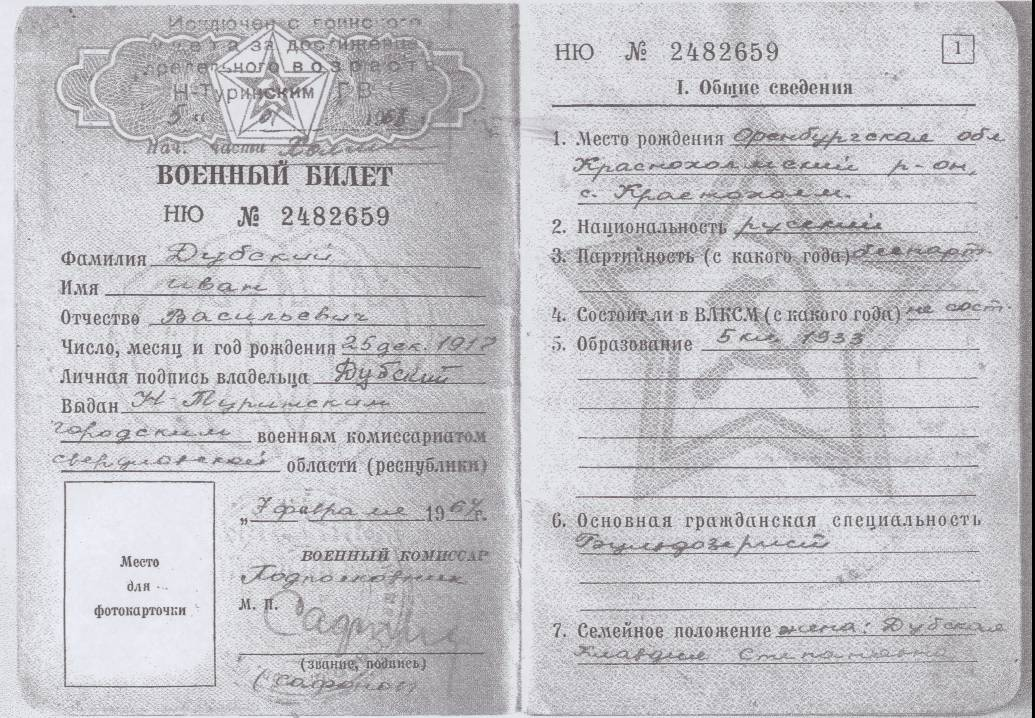 Исключен с воинского
учета за достижение
предельного возраста
Н-Туринским ГВК
5 " 1968 г.
Нач. части
ВОЕННЫЙ БИЛЕТ
НЮ № 2482659
Фамилия Дубский
Имя Иван
Отчество Васильевич
Число, месяц и год рождения 25 дек. 1917
Личная подпись владельца Дубский
Выдан Н-Туринским
городским военным комиссариатом
свердловской области (республики)
„ 7 февраля 1964 г.
ВОЕННЫЙ КОМИССАР
Подполковник
М. П.
(звание, подпись)
(Сафонов)
Место
для
фотокарточки
НЮ № 2482659
1
I. Общие сведения
1. Место рождения Оренбургская обл
Краснохолмский р-он,
с. Краснохолм.
2. Национальность русский
3. Партийность (с какого года) беспарт.
4. Состоит ли в ВЛКСМ (с какого года) не сост.
5. Образование 5 кл 1933
6. Основная гражданская специальность
Бульдозерист
7. Семейное положение жена: Дубская
Клавдия Степановна